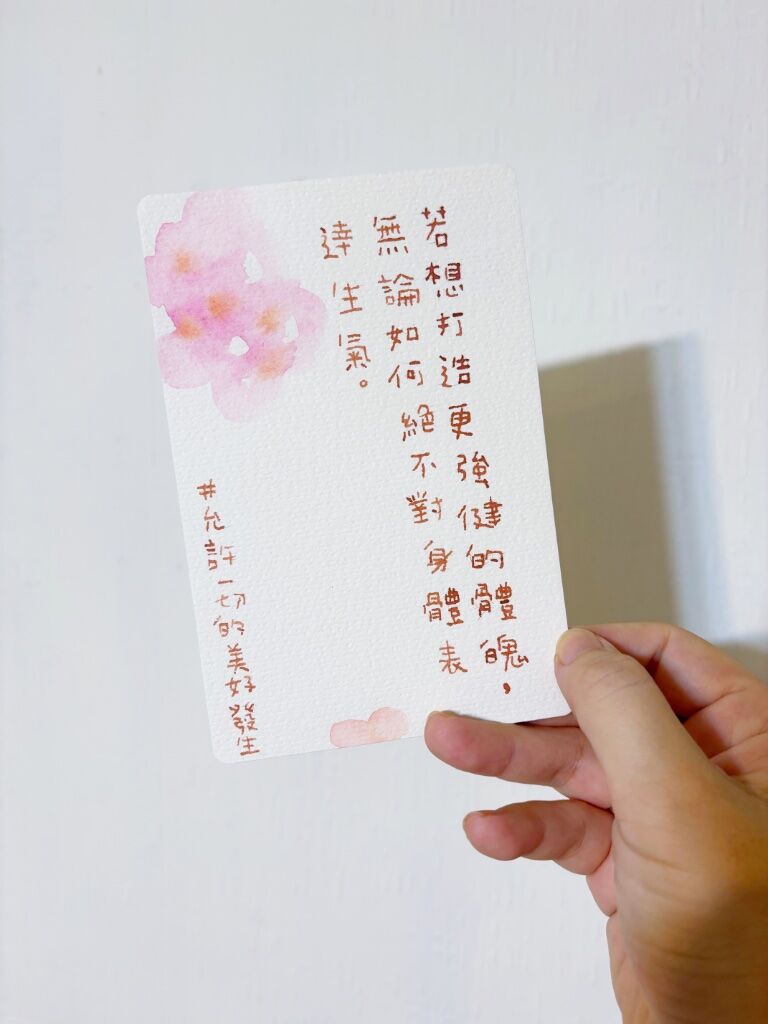 若想打造更強健的體魄，
無論如何絕不對身體表
達生氣。
#允許一切的美好發生